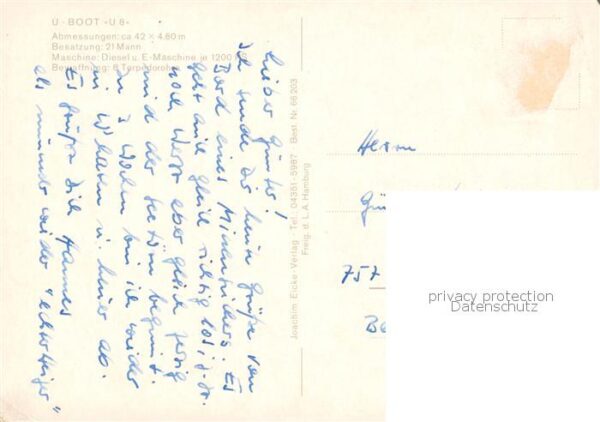 U-BOOT »U 8«
Abmessungen: ca 42 × 4.60 m
Besatzung: 21 Mann
Maschine: Diesel u. E-Maschine je 1200 PS
Bewaffnung: 8 Torpedorohre
Lieber Günter!
Ich sende dir heute Grüße von
Bord eines Minensuchers. Es
geht auch gleich richtig los, d.h.
noch Werft aber gleich
wird der Seetörn beginnt.
In 3 Wochen bin ich wieder
in
Es grüßt dich Hannes
als wieder "
Joachim Eicke-Verlag · Tel. 04351-5987 · Best. Nr. 66 203
Freig. d. L.A. Hamburg
Herrn
Gün
757
privacy protection
Datenschutz